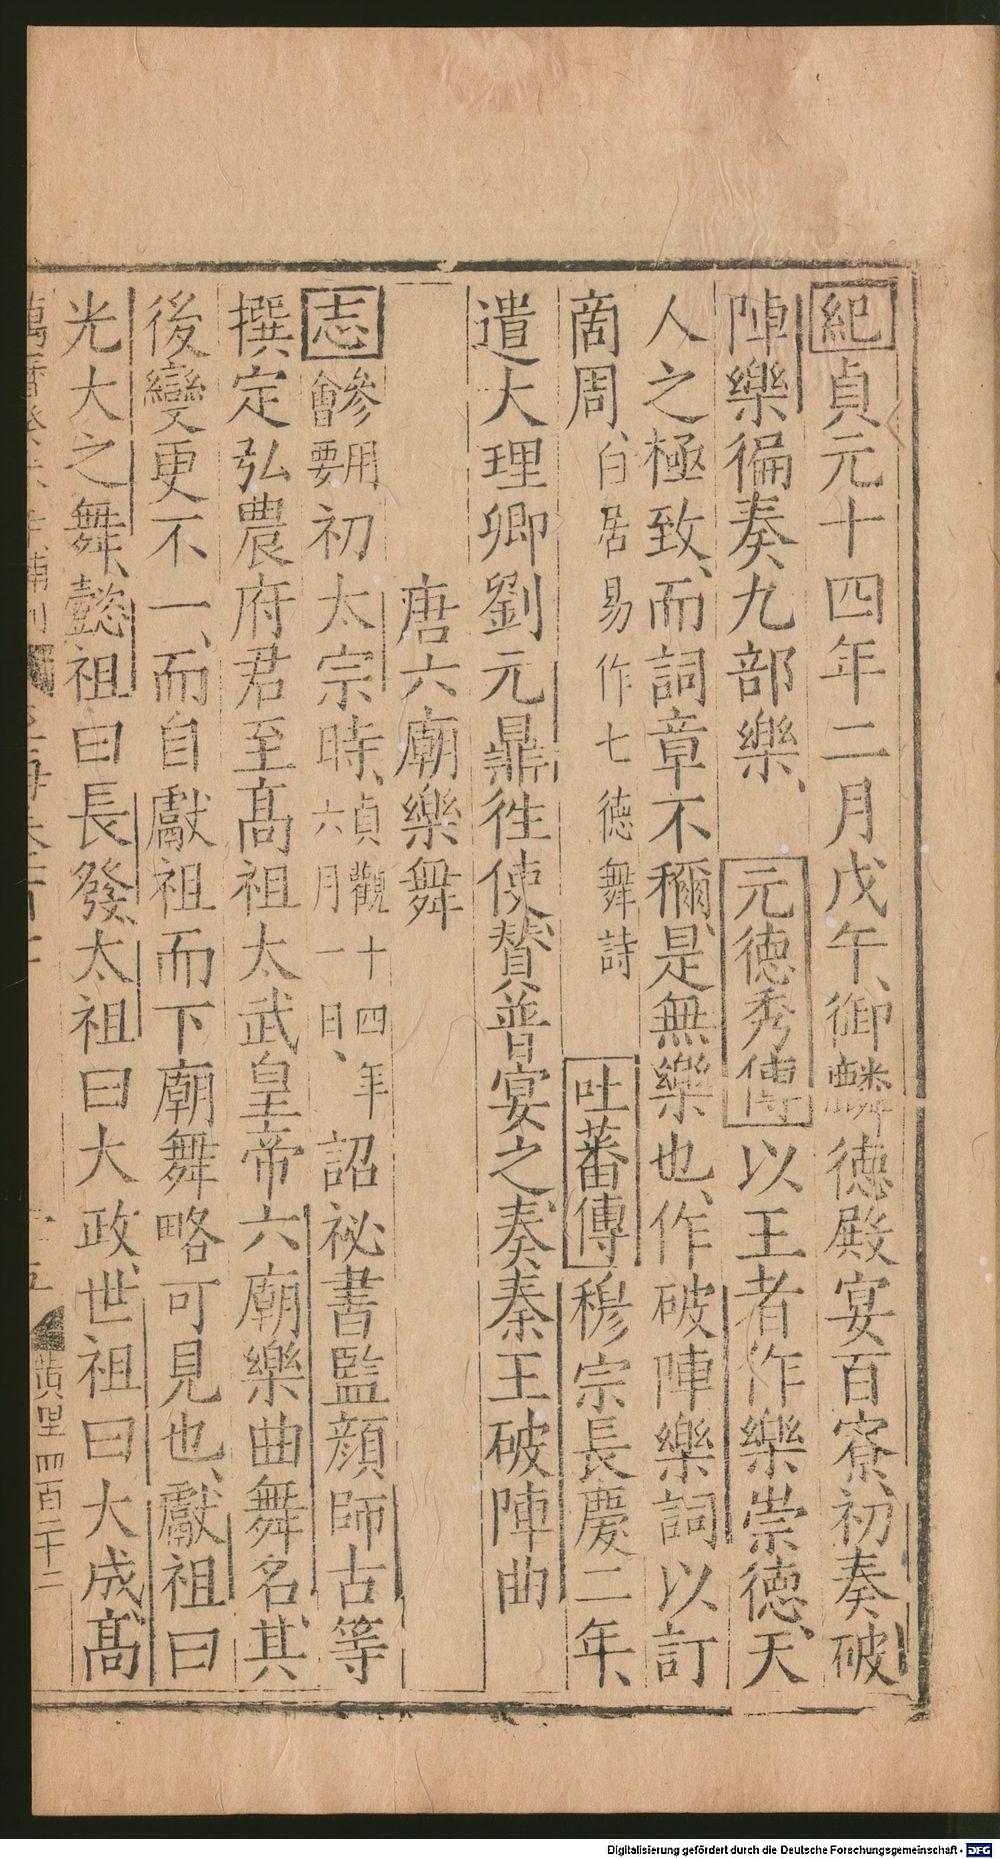 紀貞元十四年二月戊午御麟德殿宴百寮初奏破
陣樂徧奏九部樂、元德秀傳以王者作樂崇德天
人之極致、而詞章不稱是無樂也、作破陣樂詞以訂
啇周、白居易作七德舞詩 吐蕃傳穆宗長慶二年、
遣大理卿劉元鼎徃使贊普宴之奏秦王破陣曲
唐六廟樂舞
志參用會要初太宗時、貞觀十四年六月一日、詔祕書監顔師古等
撰定弘農府君至髙祖太武皇帝六廟樂曲舞名其
後變更不一、而自獻祖而下廟舞略可見也、獻祖曰
光大之舞、懿祖曰長發、太祖曰大政、世祖曰大成、髙
黄里四百二十二
Digitalisierung gefördert durch die Deutsche Forschungsgemeinschaft - DFG